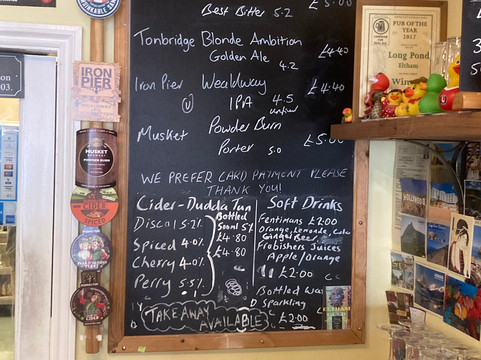 Best Bitter 5.2 £5.00
Tonbridge Blonde Ambition
Golden Ale £4.40
4.2
Iron Pier Wealdway £4.40
IPA 4.5
V unfined
Musket Powder Burn
Porter 5.0 £5.00
WE PREFER CARD PAYMENT PLEASE
THANK YOU!
Cider - Dudda Tun
Disco 5.2%
Spiced 4.0%
Cherry 4.0%
Perry 5.5%
Bottled
500ml 5%
£4.80
£4.80
TAKEAWAY
AVAILABLE
Soft Drinks
Fentimans £2.00
Orange, Lemonade, Cola
Ginger Beer
Frobishers Juices
Apple/Orange
£2.00
Bottled Water
Sparkling
£2.00
IRON
PIER
MUSKET
CIDER
SPICED
CIDER
PUB OF THE
YEAR
2017
Long Pond
Eltham